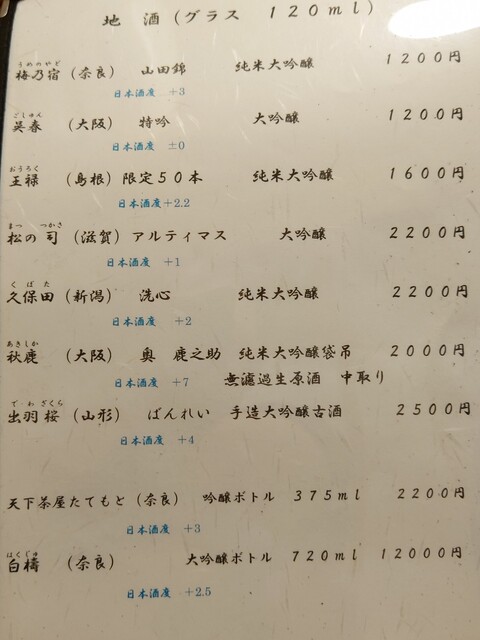 地 酒 (グラス 120ml)
うめのやど
梅乃宿 (奈良) 山田錦 純米大吟醸 1200円
日本酒度 +3
ごしゅん
呉春 (大阪) 特吟 大吟醸 1200円
日本酒度 ±0
おうろく
王禄 (島根) 限定50本 純米大吟醸 1600円
日本酒度 +2.2
まつ つかさ
松の司 (滋賀) アルティマス 大吟醸 2200円
日本酒度 +1
くぼた
久保田 (新潟) 洗心 純米大吟醸 2200円
日本酒度 +2
あきしか
秋鹿 (大阪) 奥 鹿之助 純米大吟醸袋吊 2000円
日本酒度 +7 無濾過生原酒 中取り
でわざくら
出羽桜 (山形) ばんれい 手造大吟醸古酒 2500円
日本酒度 +4
天下茶屋たてもと (奈良) 吟醸ボトル 375ml 2200円
日本酒度 +3
はくじゅ
白檮 (奈良) 大吟醸ボトル 720ml 12000円
日本酒度 +2.5